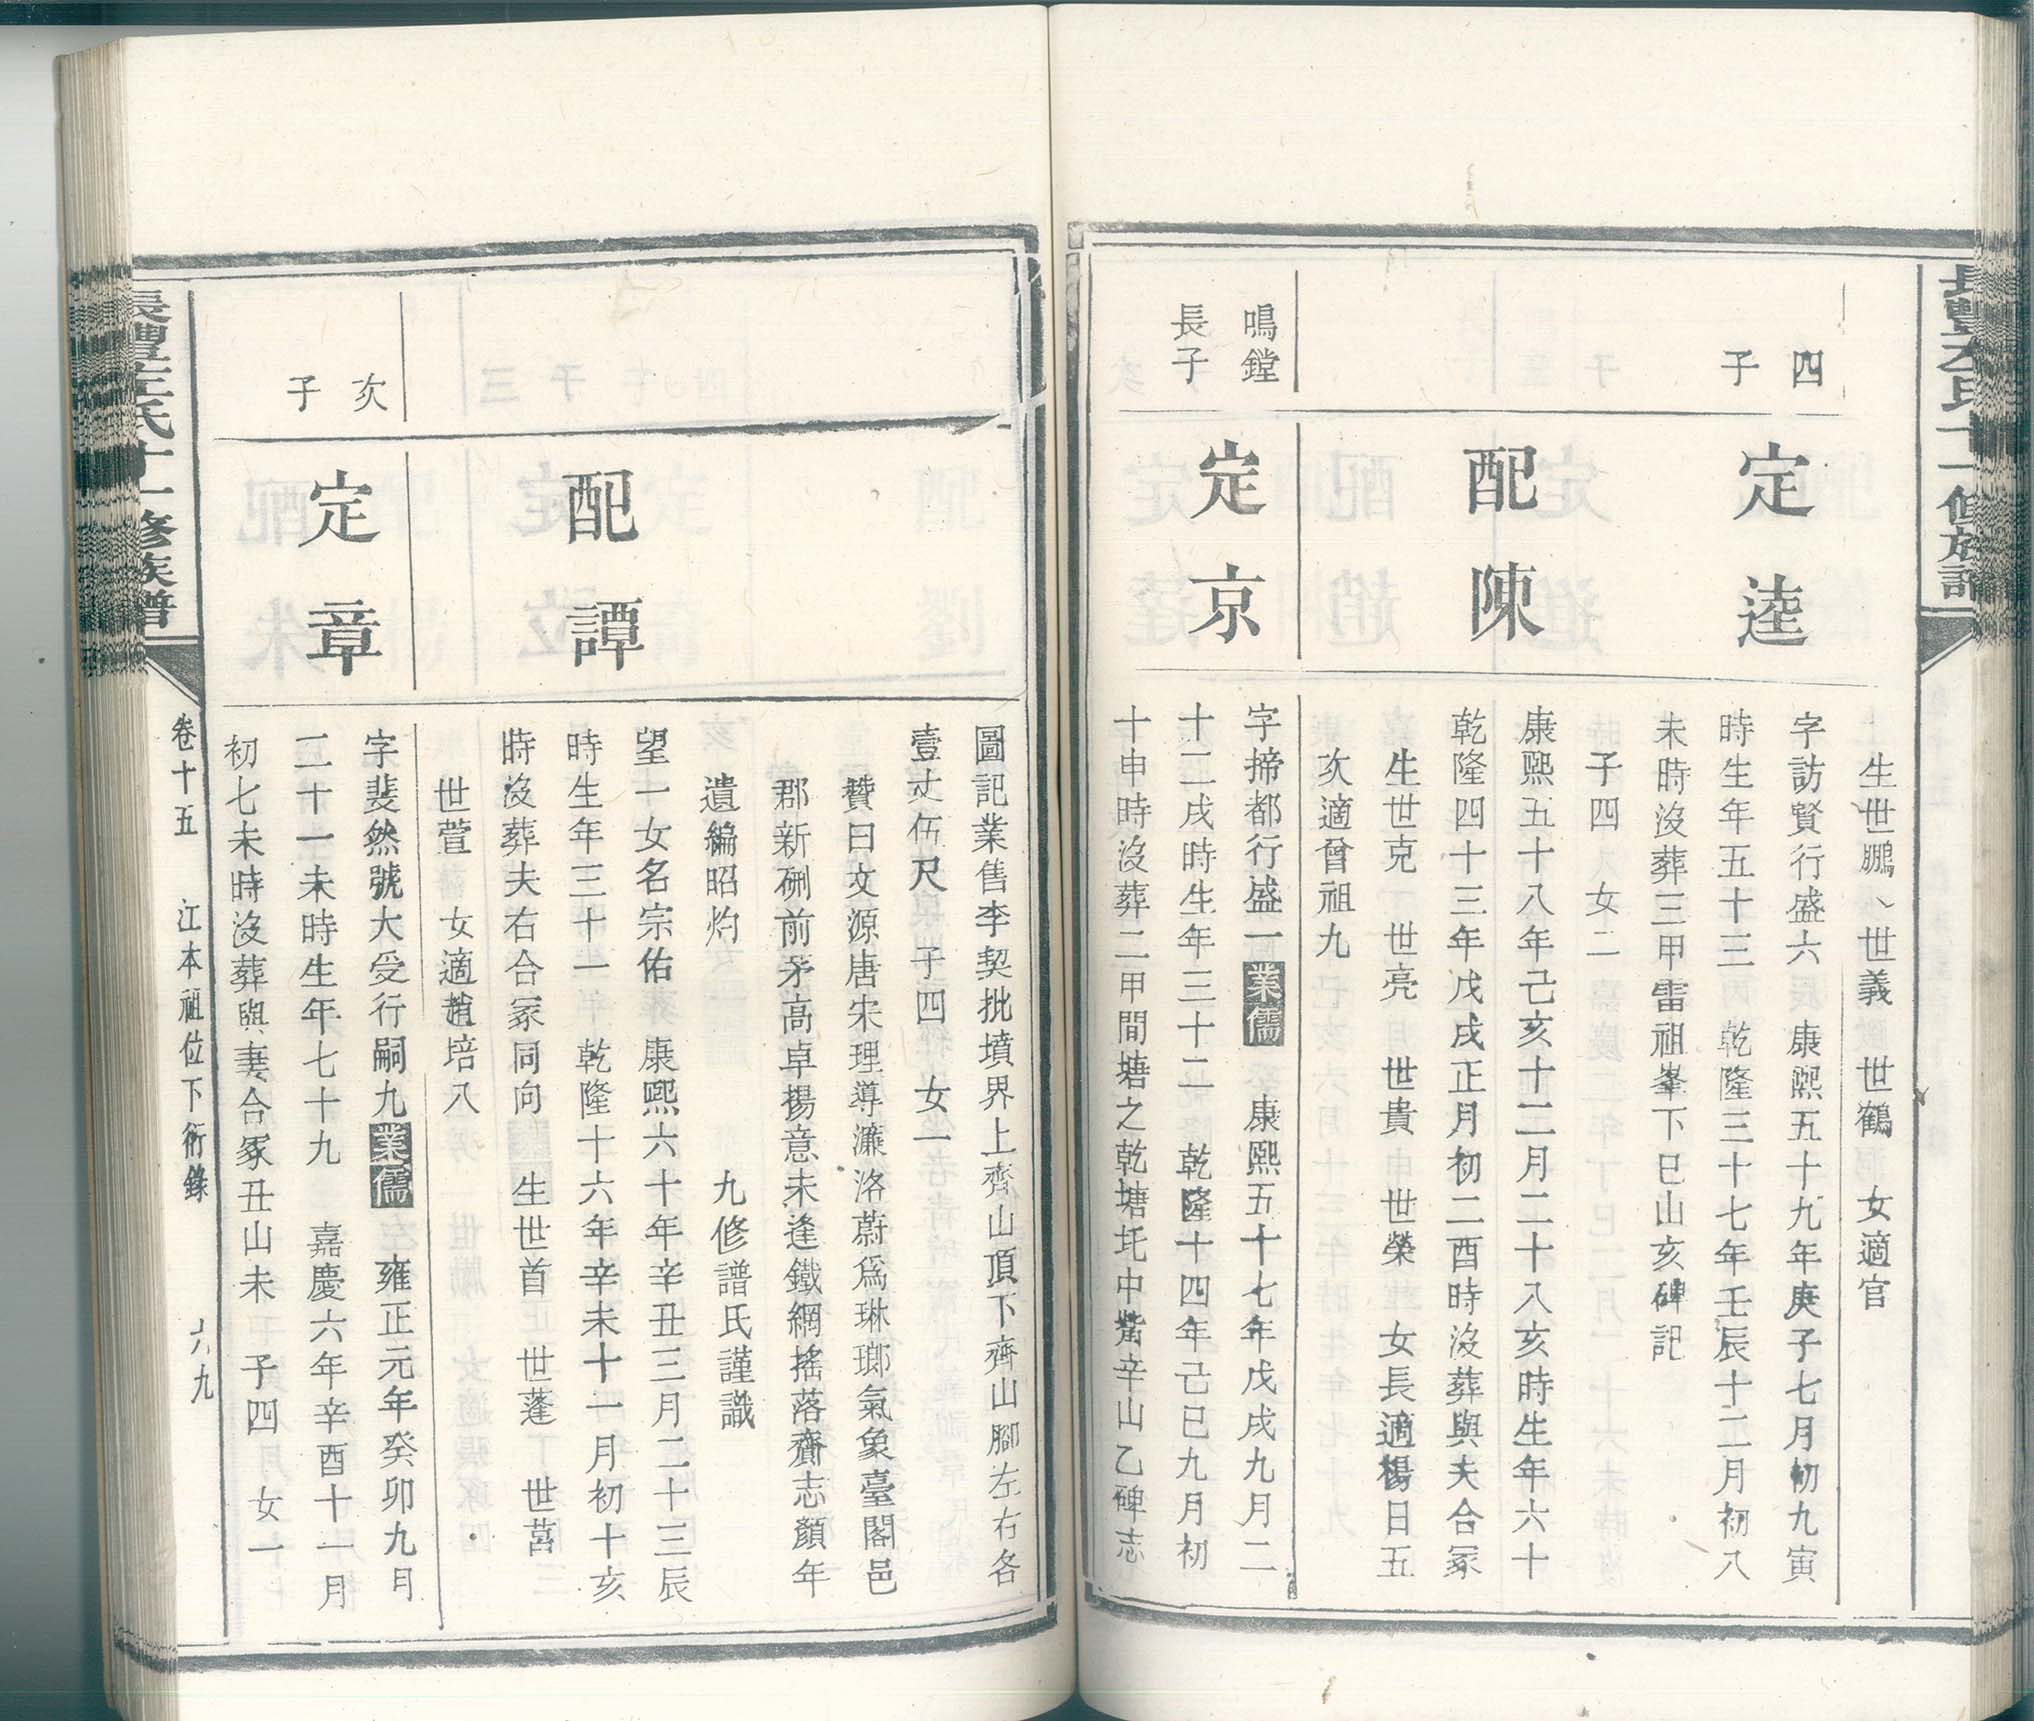 生世鵬、世義 世鶴 女適官
四子
定逵
字訪賢行盛六 康熙五十九年庚子七月初九寅
時生年五十三 乾隆三十七年壬辰十二月初八
未時沒葬三甲雷祖峯下巳山亥碑記
子四 女二
配陳
康熙五十八年己亥十二月二十八亥時生年六十
乾隆四十三年戊戌正月初二酉時沒葬與夫合冢
生世克 世亮 世貴 世榮 女長適楊日五
次適曾祖九
鳴鏜
長子
定京
字揥都行盛一業儒 康熙五十七年戊戌九月二
十二戌時生年三十二 乾隆十四年己巳九月初
十申時沒葬二甲間塘之乾塘坨中嘴辛山乙碑志
圖記業售李契批墳界上齊山頂下齊山腳左右各
壹丈伍尺 子四 女一
贊曰文源唐宋理導濂洛蔚為琳瑯氣象臺閣邑
郡新硎前矛高卓揚意未逢鐵網搖落齎志顏年
遺編昭灼 九修譜氏謹識
配譚
望一女名宗佑 康熙六十年辛丑三月二十三辰
時生年三十一 乾隆十六年辛未十一月初十亥
時沒葬夫右合冢同向 生世首 世蓬 世莒
世萱 女適趙培八
次子
定章
字斐然號大受行嗣九業儒 雍正元年癸卯九月
二十一未時生年七十九 嘉慶六年辛酉十一月
初七未時沒葬與妻合冢丑山未 子四 女一
長豐左氏十一修族譜
卷十五 江本祖位下衍錄 六九